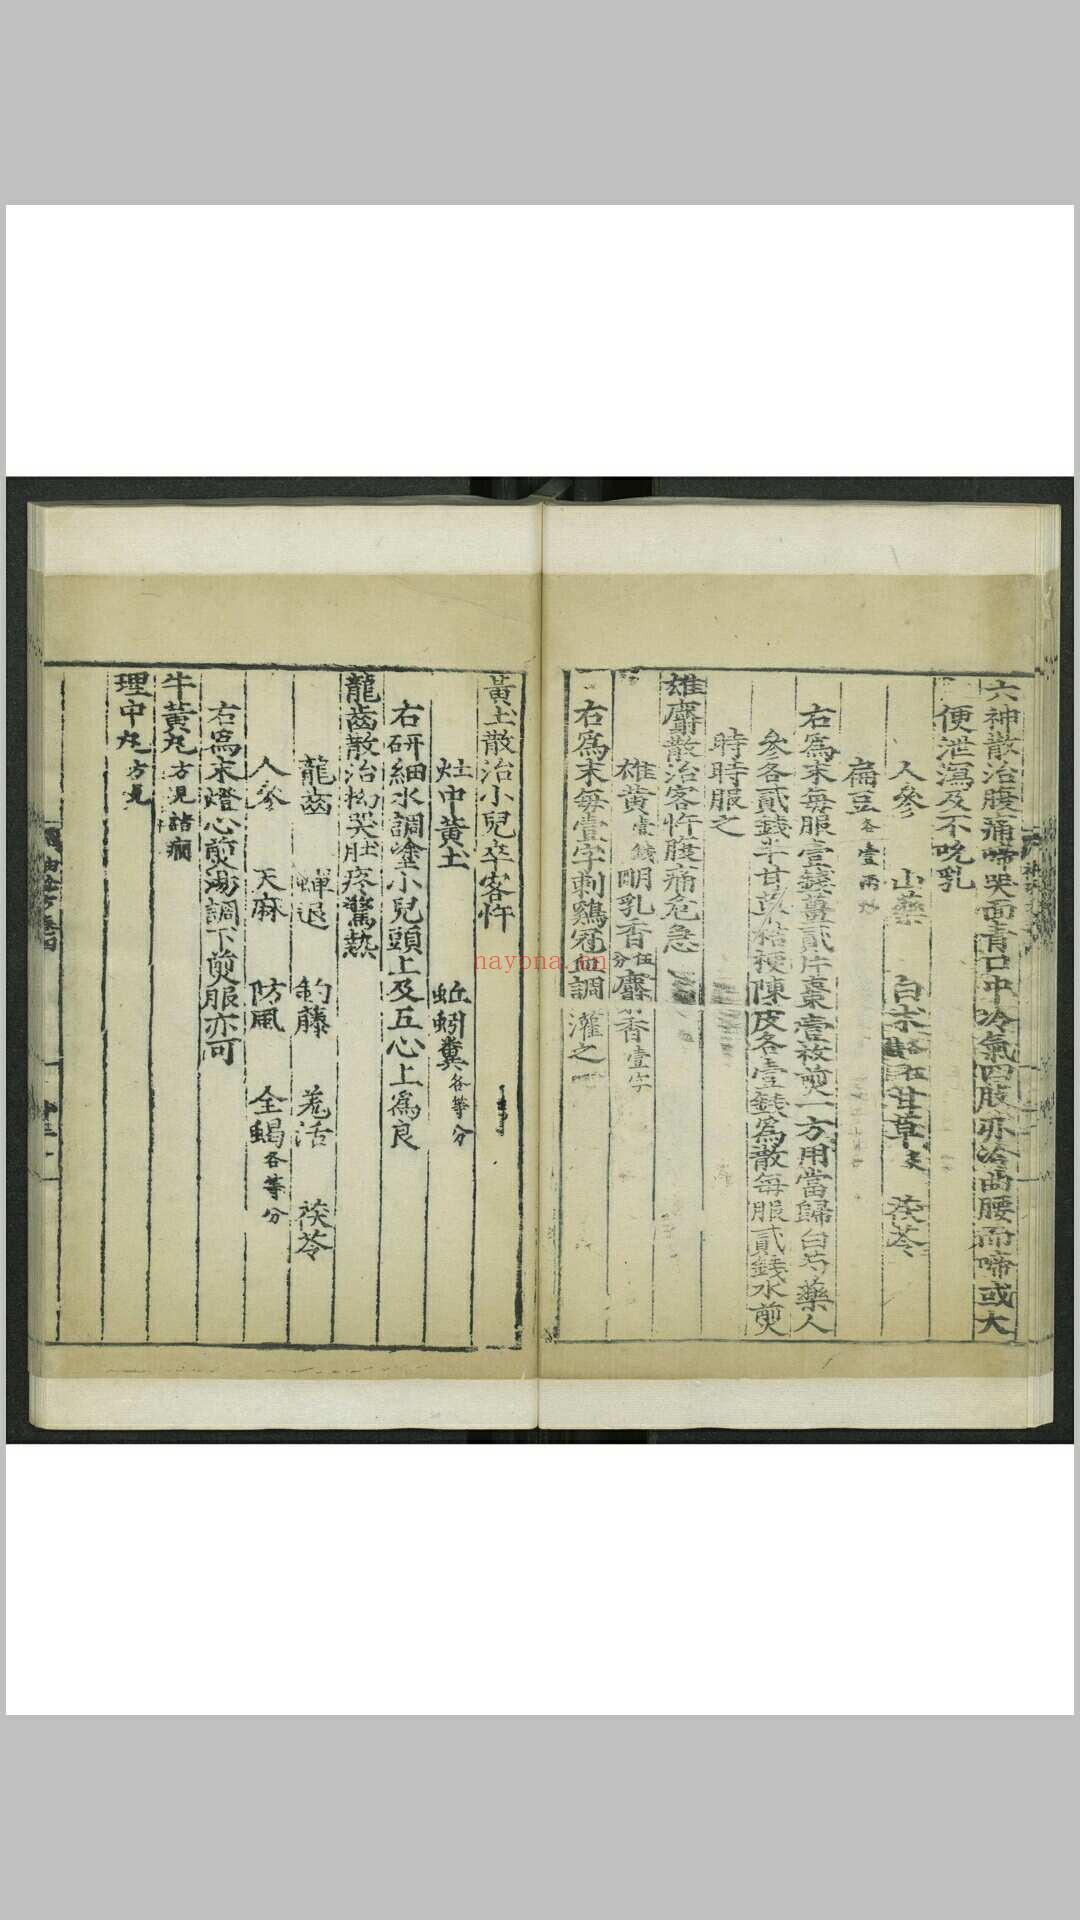 六神散治腹痛啼哭面青口中冷氣四肢亦冷曲腰而啼或大
便泄瀉及不吮乳
人參 山藥 白朮 甘草 茯苓
扁豆各壹兩炒
右爲末每服壹錢薑貳片棗壹枚煎一方用當歸白芍藥人
參各貳錢半甘草桔梗陳皮各壹錢爲散每服貳錢水煎
時時服之
雄麝散治客忤腹痛危急
雄黃壹錢明乳香伍分麝香壹字
右爲末每壹字刺雞冠血調灌之
黃土散治小兒卒客忤
灶中黃土 蚯蚓糞各等分
右研細水調塗小兒頭上及五心上爲良
龍齒散治拗哭肚疼驚熱
龍齒 蟬退 釣藤 羗活 茯苓
人參 天麻 防風 全蝎各等分
右爲末燈心煎湯調下煎服亦可
牛黃丸方見諸癇
理中丸方見
nayona.cn